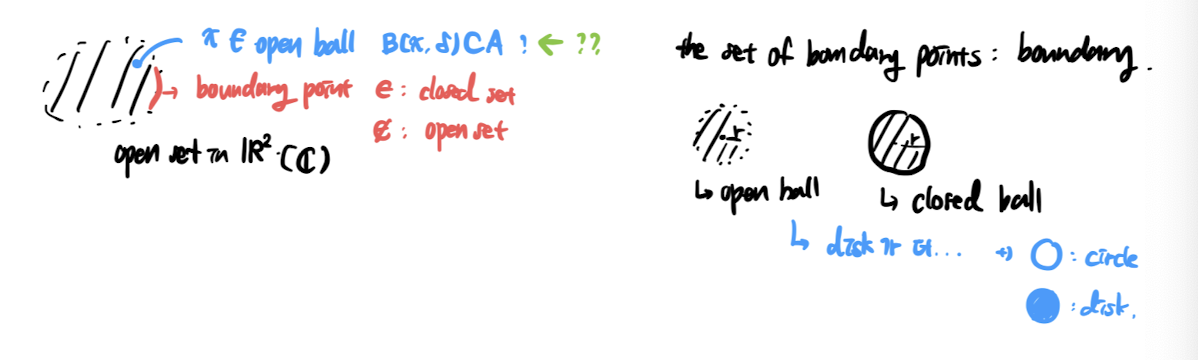 x ∈ open ball B(x, δ) ⊂ A ! ← ??
→ boundary point ∈ : closed set
∉ : open set
open set in ℝ². (ℂ)
the set of boundary points : boundary.
r
r
↳ open ball
↳ closed ball
↳ disk
+) ○ : circle
● : disk.